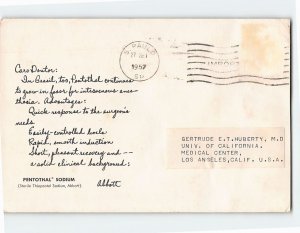 Caro Doutor:
In Brasil, too, Pentothal continues
to grow in favor for intravenous anes-
thesia. Advantages:
Quick response to the surgeon's
needs
Easily-controlled levels
Rapid, smooth induction
Short, pleasant recovery and --
a solid clinical background:
PENTOTHAL® SODIUM
(Sterile Thiopental Sodium, Abbott)
Abbott
S. PAULO
1957
SP.
GERTRUDE E.T.HUBERTY, M.D
UNIV. OF CALIFORNIA.
MEDICAL CENTER,
LOS ANGELES,CALIF. U.S.A.